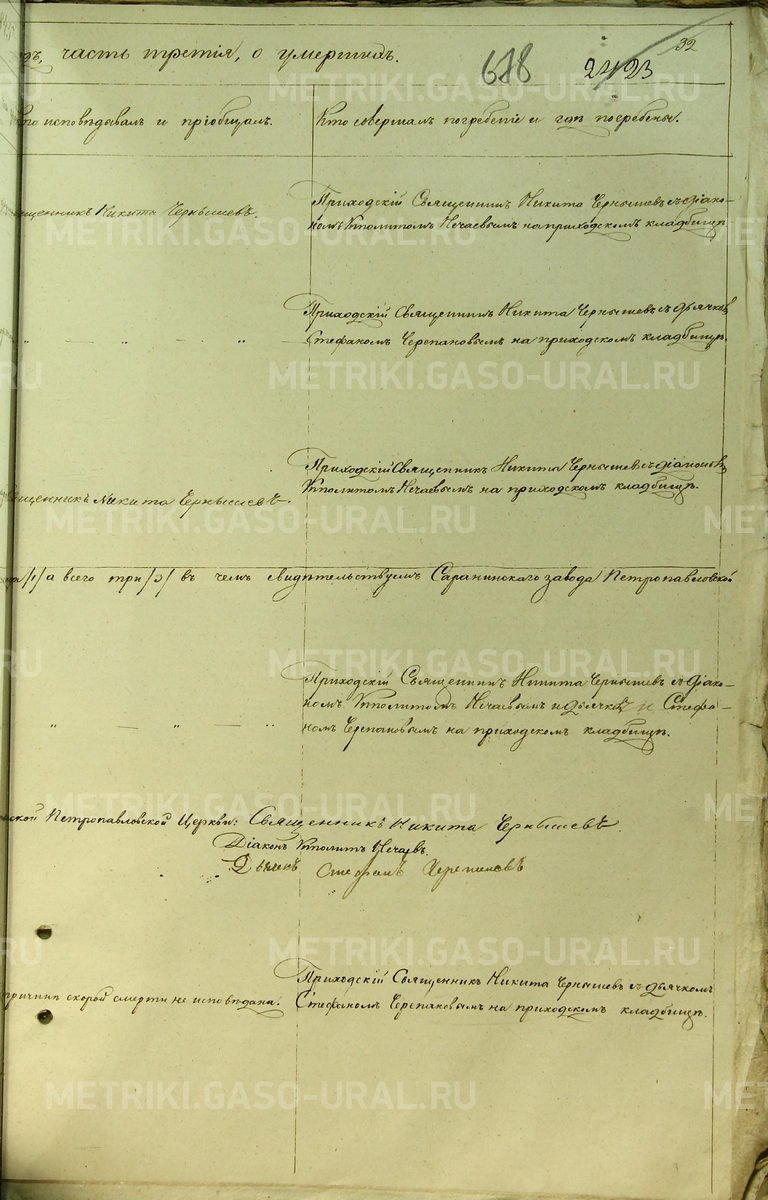 32
дъ, часть третія, о умершихъ.
618 2423
исповѣдывалъ и пріобщалъ.
Кто совершалъ погребеніе и гдѣ погребены.
щенникъ Никита Чернышевъ.
Приходскій Священникъ Никита Чернышевъ съ Діако-
номъ Ипполитомъ Нечаевымъ на приходскомъ кладбищѣ
Приходскій Священникъ Никита Чернышевъ съ дьячкомъ
„ — „ — „
Стефаномъ Черепановымъ на приходскомъ кладбищѣ.
Приходскій Священникъ Никита Чернышевъ съ діакономъ
щенникъ Никита Чернышевъ.
Ипполитомъ Нечаевымъ на приходскомъ кладбищѣ.
/1/ а всего три /3/ въ чемъ свидѣтельствуемъ Саранинскаго завода Петропавловской
Приходскій Священникъ Никита Чернышевъ съ Діако-
номъ Ипполитомъ Нечаевымъ и Дьячко Стефа-
„ — „ — „
номъ Черепановымъ на приходскомъ кладбищѣ.
ской Петропавловской Церкви: Священникъ Никита Чернышевъ.
Діаконъ Ипполитъ Нечаевъ.
Дьячекъ Стефанъ Черепановъ
Приходскій Священникъ Никита Чернышевъ съ дьячкомъ
причинѣ скорой смерти не исповѣдана.
Стефаномъ Черепановымъ на приходскомъ кладбищѣ.
METRIKI.GASO-URAL.RU